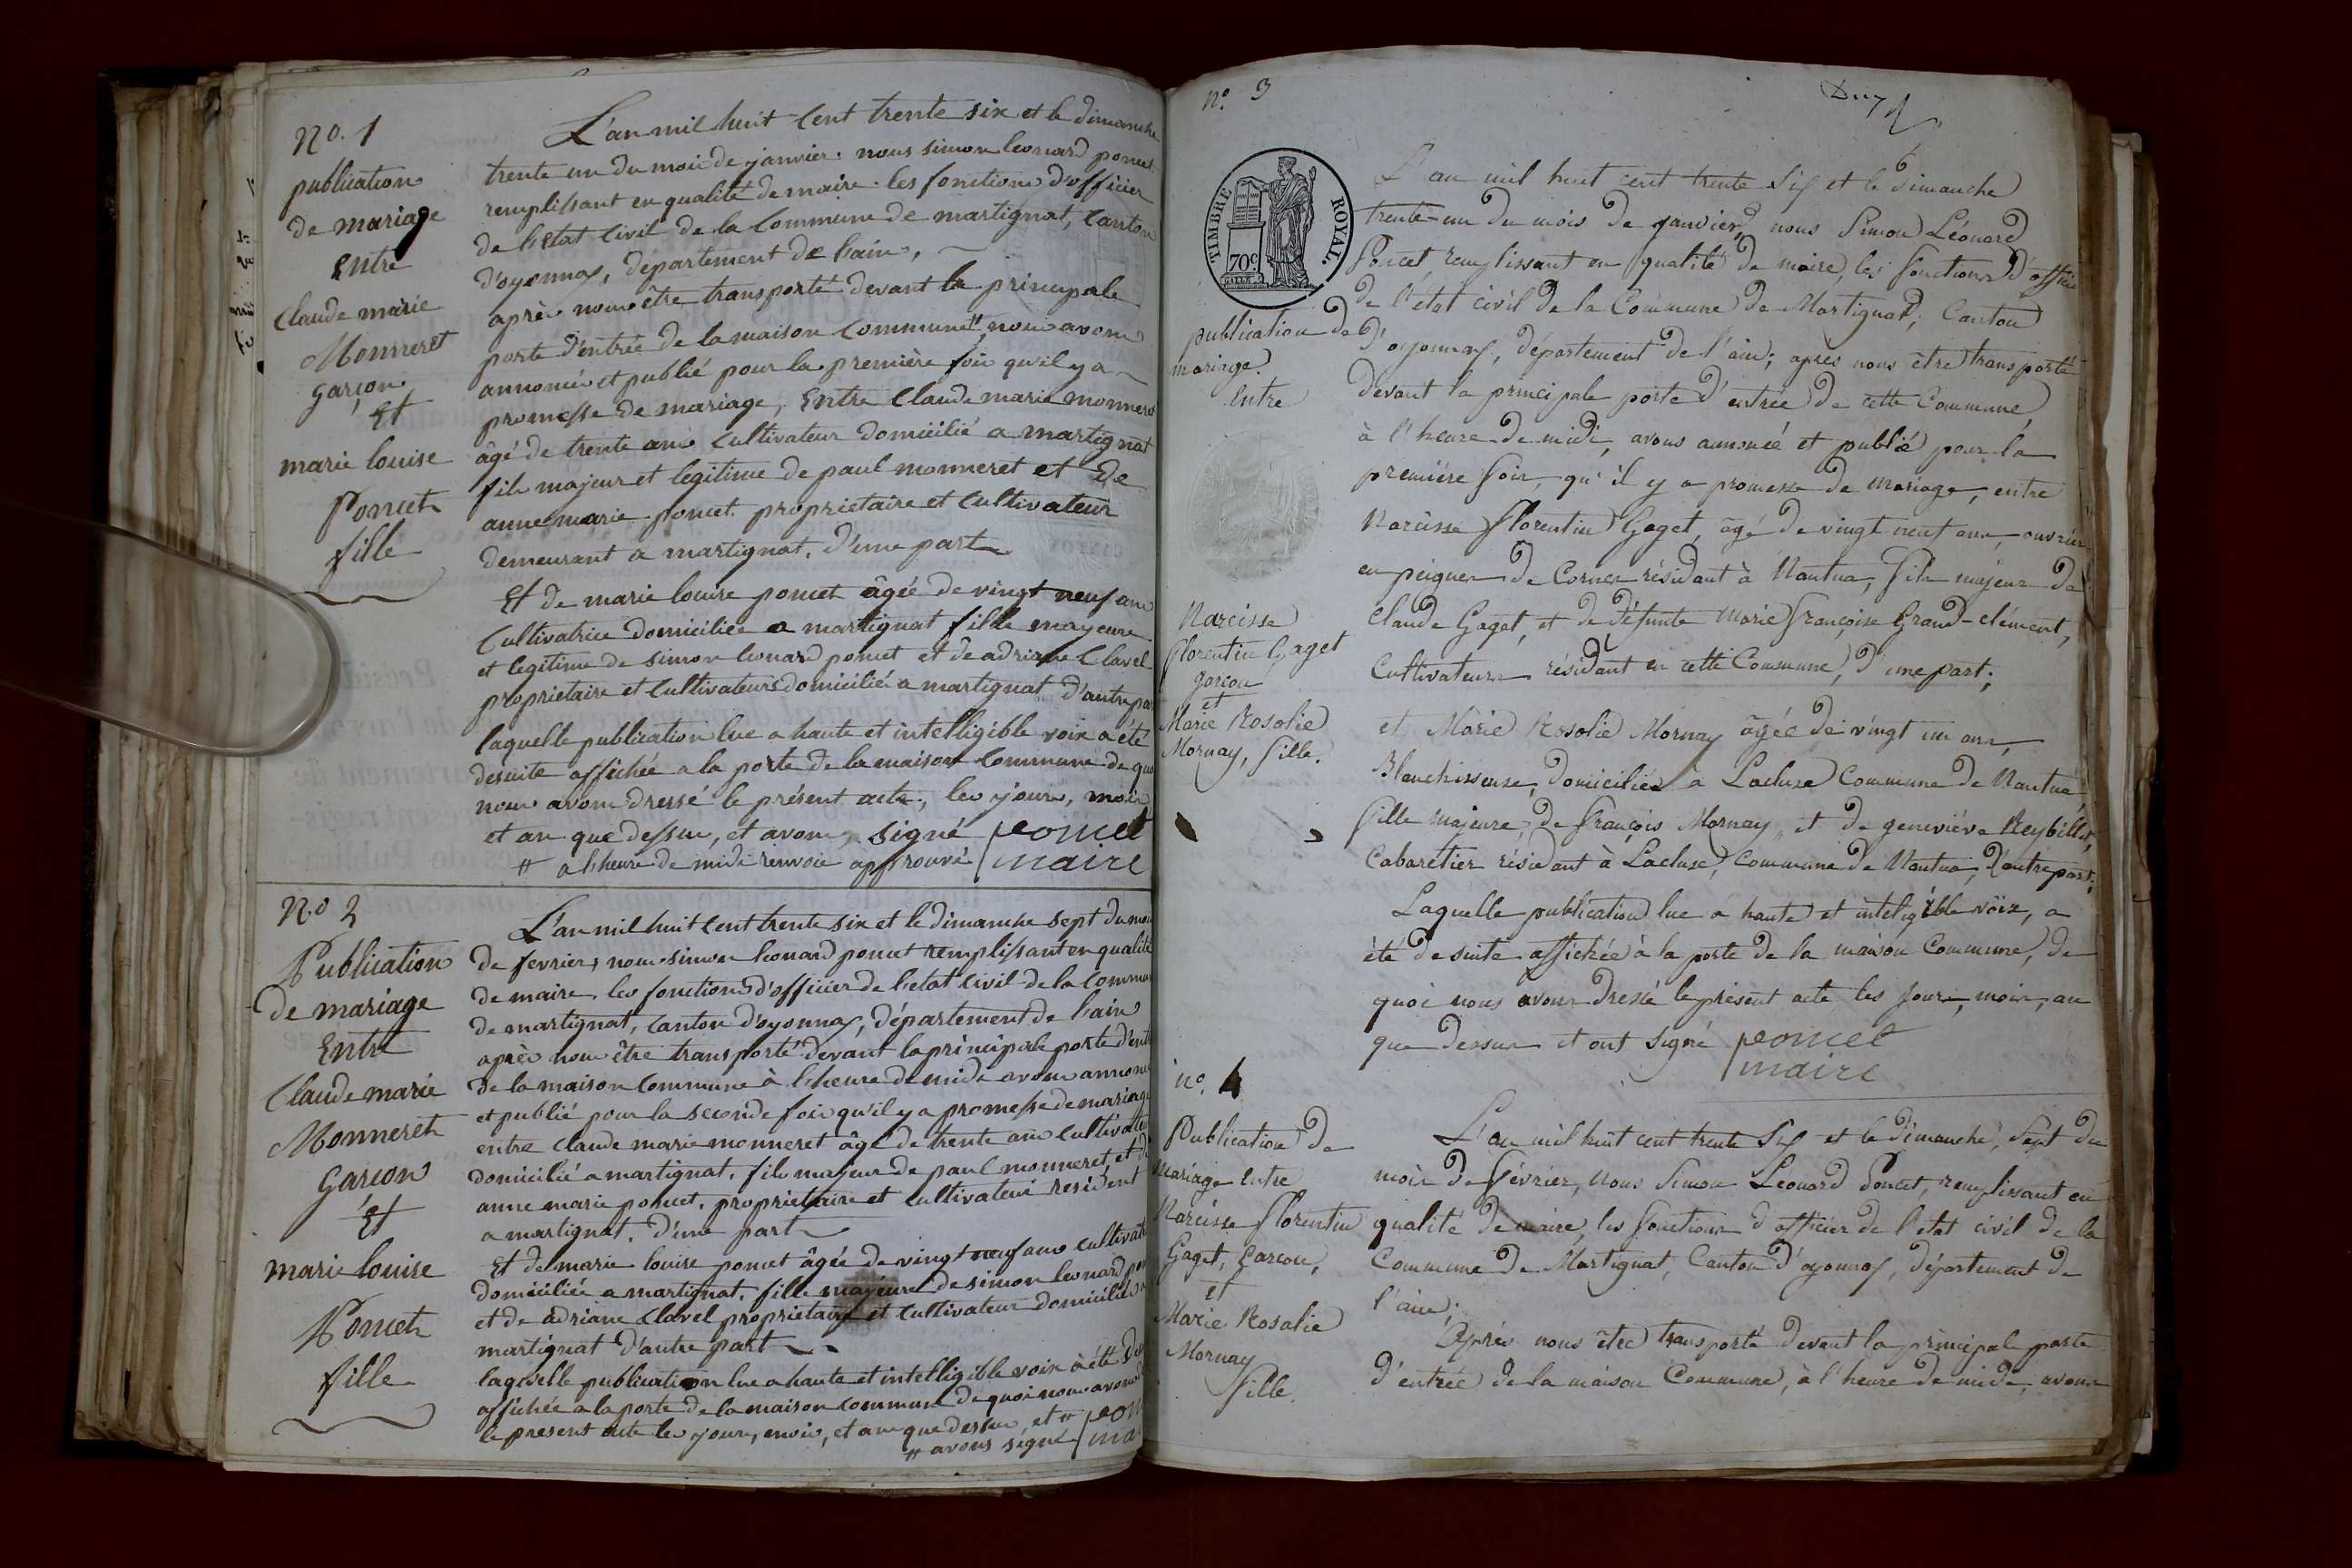 No. 1
publication
de mariage
Entre
Claude marie
Monneret
garçon
Et
marie louise
Poncet
fille
L'an mil huit Cent trente six et le dimanche
trente un du mois de janvier. nous simon leonard poncet
remplissant en qualité de maire. les fonctions d'officier
de l'état Civil de la Commune de martignat, Canton
d'oyonnax, département de l'ain,
après nous être transporté devant la principale
porte d'entrée de la maison Commune # nous avons
annoncé et publié pour la première fois qu'il y a
promesse de mariage, Entre Claude marie monneret
âgé de trente ans Cultivateur domicilié a martignat
fils majeur et legitime de paul monneret et de
anne marie poncet. proprietaire et Cultivateur
demeurant a martignat. d'une part
Et de marie louise poncet âgée de vingt neuf ans
Cultivatrice domiciliée a martignat fille mayeure
et legitime de simon leonard poncet et de adriane Clavel
proprietaire et Cultivateurs domicilié a martignat d'autre par
laquelle publication lue a haute et intelligible voix a été
desuite affichée a la porte de la maison Commune de quoi
nous avons dressé le présent acte, les jours, mois
et an que dessus, et avons signé poncet
# a l'heure de midi renvoie approuvé maire
N.o 2
Publication
de mariage
Entre
Claude marie
Monneret
Garcon
Et
marie louise
Poncet
fille
L'an mil huit Cent trente six et le dimanche sept du moi
de fevrier, nous simon leonard poncet remplissant en qualité
de maire. les fonctions d'officier de l'etat Civil de la Commu
de martignat, Canton d'oyonnax, département de l'ain
après nous être transporté devant la principale porte d'entr
de la maison Commune à l'heure de midi avons annoncé
et publié pour la seconde fois qu'il y a promesse de mariage
entre Claude marie monneret âgé de trente ans Cultivateu
domicilié a martignat. fils majeur de paul monneret, et de
anne marie poncet. proprietaire et Cultivateur resident
a martignat. d'une part
Et de marie louise poncet âgée de vingt neuf ans cultivat
domiciliée a martignat. fille majeure de simon leonard pon
et de adriane Clavel proprietaire et Cultivateur domicilié a
martignat d'autre part
laquelle publication lue a haute et intelligible voix à été de
affichée a la porte de la maison Commune de quoi nous avons
le present acte les jours, mois, et an que dessus et # pon
# avons signé mai
No. 3
TIMBRE ROYAL.
70c
publication de
mariage.
Entre
Narcisse
Florentin Gaget
garcon
et
Marie Rosalie
Mornay, fille.
L'an mil huit cent trente Six et le dimanche
trente-un du mois de janvier, nous Simon Léonard
Poncet, remplissant en qualité de maire, les fonctions d'officie
de l'état civil de la Commune de Martignat, Canton
d'oyonnax, département de l'ain; après nous être transporté
devant la principale porte d'entrée de cette Commune
à l'heure de midi, avons annoncé et publié pour la
première fois, qu'il y a promesse de mariage, entre
Narcisse Florentin Gaget, âgé de vingt neuf ans, ouvrier
en peignes de Cornes résidant à Nantua, Fils majeur de
Claude Gaget, et de défunte Marie Françoise Grand-clément,
Cultivateurs résidant en cette Commune, d'une part;
et Marie Rosalie Mornay âgée de vingt un ans,
Blanchisseuse, domiciliée à Lacluse Commune de Nantua
fille majeure, de François Mornay, et de geneviève Reybillet,
Cabaretier résidant à Lacluse, Commune de Nantua, d'autre part;
Laquelle publication lue à haute et inteligible voix, a
èté de suite affichée à la porte de la maison Commune, de
quoi nous avons dressé le présent acte les jour, mois, an
que dessus et ont signé poncet
maire
no. 4
Publication de
mariage Entre
Narcisse Florentin
Gaget, Garcon,
et
Marie Rosalie
Mornay
fille.
L'an mil huit cent trente Six et le dimanche, Sept du
mois de Février, Nous Simon Léonard Poncet, remplissant en
qualité de maire, les fonctions d'officier de l'etat civil de la
Commune de Martignat, Canton d'oyonnax, département de
l'ain;
Après nous être transporté devant la principale porte
d'entrée de la maison Commune, à l'heure de midi, avons